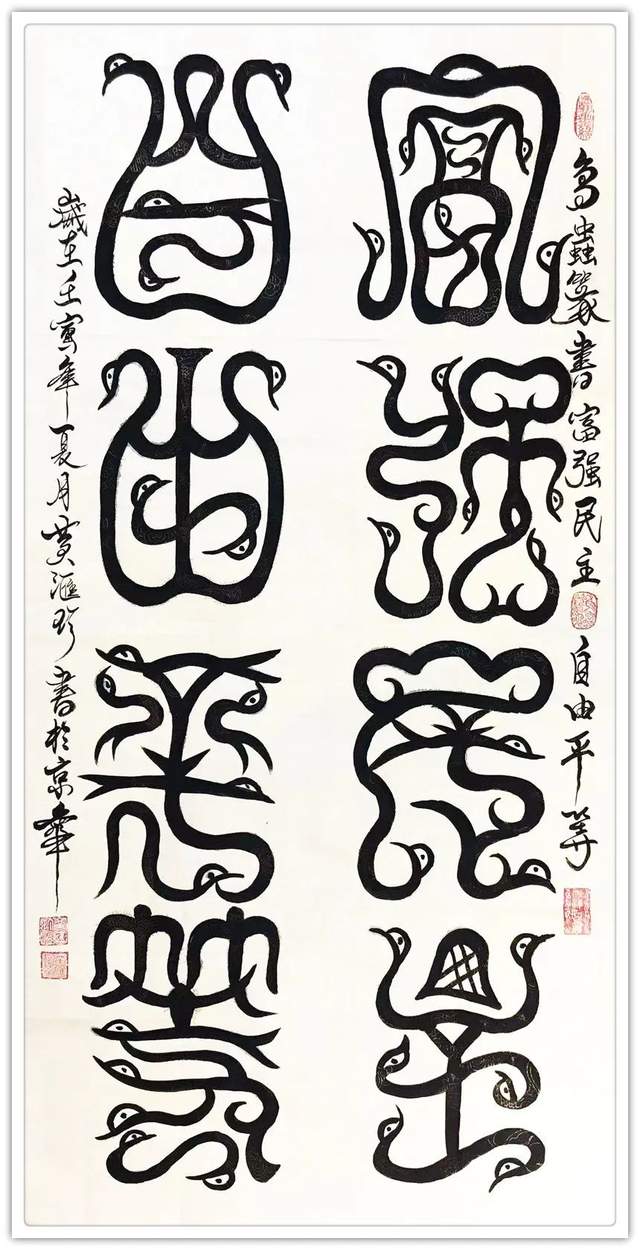 鸟蟲篆書富强民主自由平等
富强民主
自由平等
歲在壬寅年夏月黄滙珍書於京華